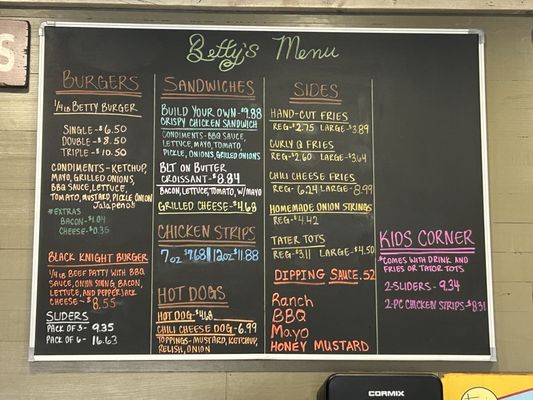 S
Betty's Menu
BURGERS
1/4 LB BETTY BURGER
SINGLE - $6.50
DOUBLE - $8.50
TRIPLE - $10.50
CONDIMENTS - KETCHUP,
MAYO, GRILLED ONIONS,
BBQ SAUCE, LETTUCE,
TOMATO, MUSTARD, PICKLE, ONION
Jalapeños
*EXTRAS
BACON - $1.04
CHEESE - $0.35
BLACK KNIGHT BURGER
1/4 LB BEEF PATTY WITH BBQ
SAUCE, ONION STRING, BACON,
LETTUCE, AND PEPPERJACK
CHEESE - $8.55
SLIDERS
PACK OF 3 - 9.35
PACK OF 6 - 16.63
SANDWICHES
BUILD YOUR OWN - $9.88
CRISPY CHICKEN SANDWICH
CONDIMENTS - BBQ SAUCE,
LETTUCE, MAYO, TOMATO,
PICKLE, ONIONS, GRILLED ONIONS
BLT ON BUTTER
CROISSANT - $8.84
BACON, LETTUCE, TOMATO, W/MAYO
GRILLED CHEESE - $4.68
CHICKEN STRIPS
7oz $9.68 12oz $11.88
HOT DOGS
HOT DOG - $4.68
CHILI CHEESE DOG - 6.99
TOPPINGS - MUSTARD, KETCHUP,
RELISH, ONION
SIDES
HAND-CUT FRIES
REG - $2.75 LARGE - $3.89
CURLY Q FRIES
REG - $2.60 LARGE - $3.64
CHILI CHEESE FRIES
REG - 6.24 LARGE - 8.99
HOMEMADE ONION STRINGS
REG - $4.42
TATER TOTS
REG - $3.11 LARGE - $4.50
DIPPING SAUCE .52
Ranch
BBQ
Mayo
HONEY MUSTARD
KIDS CORNER
*COMES WITH DRINK AND
FRIES OR TATOR TOTS
2-SLIDERS - 9.34
2-PC CHICKEN STRIPS - $8.31
CORMIX